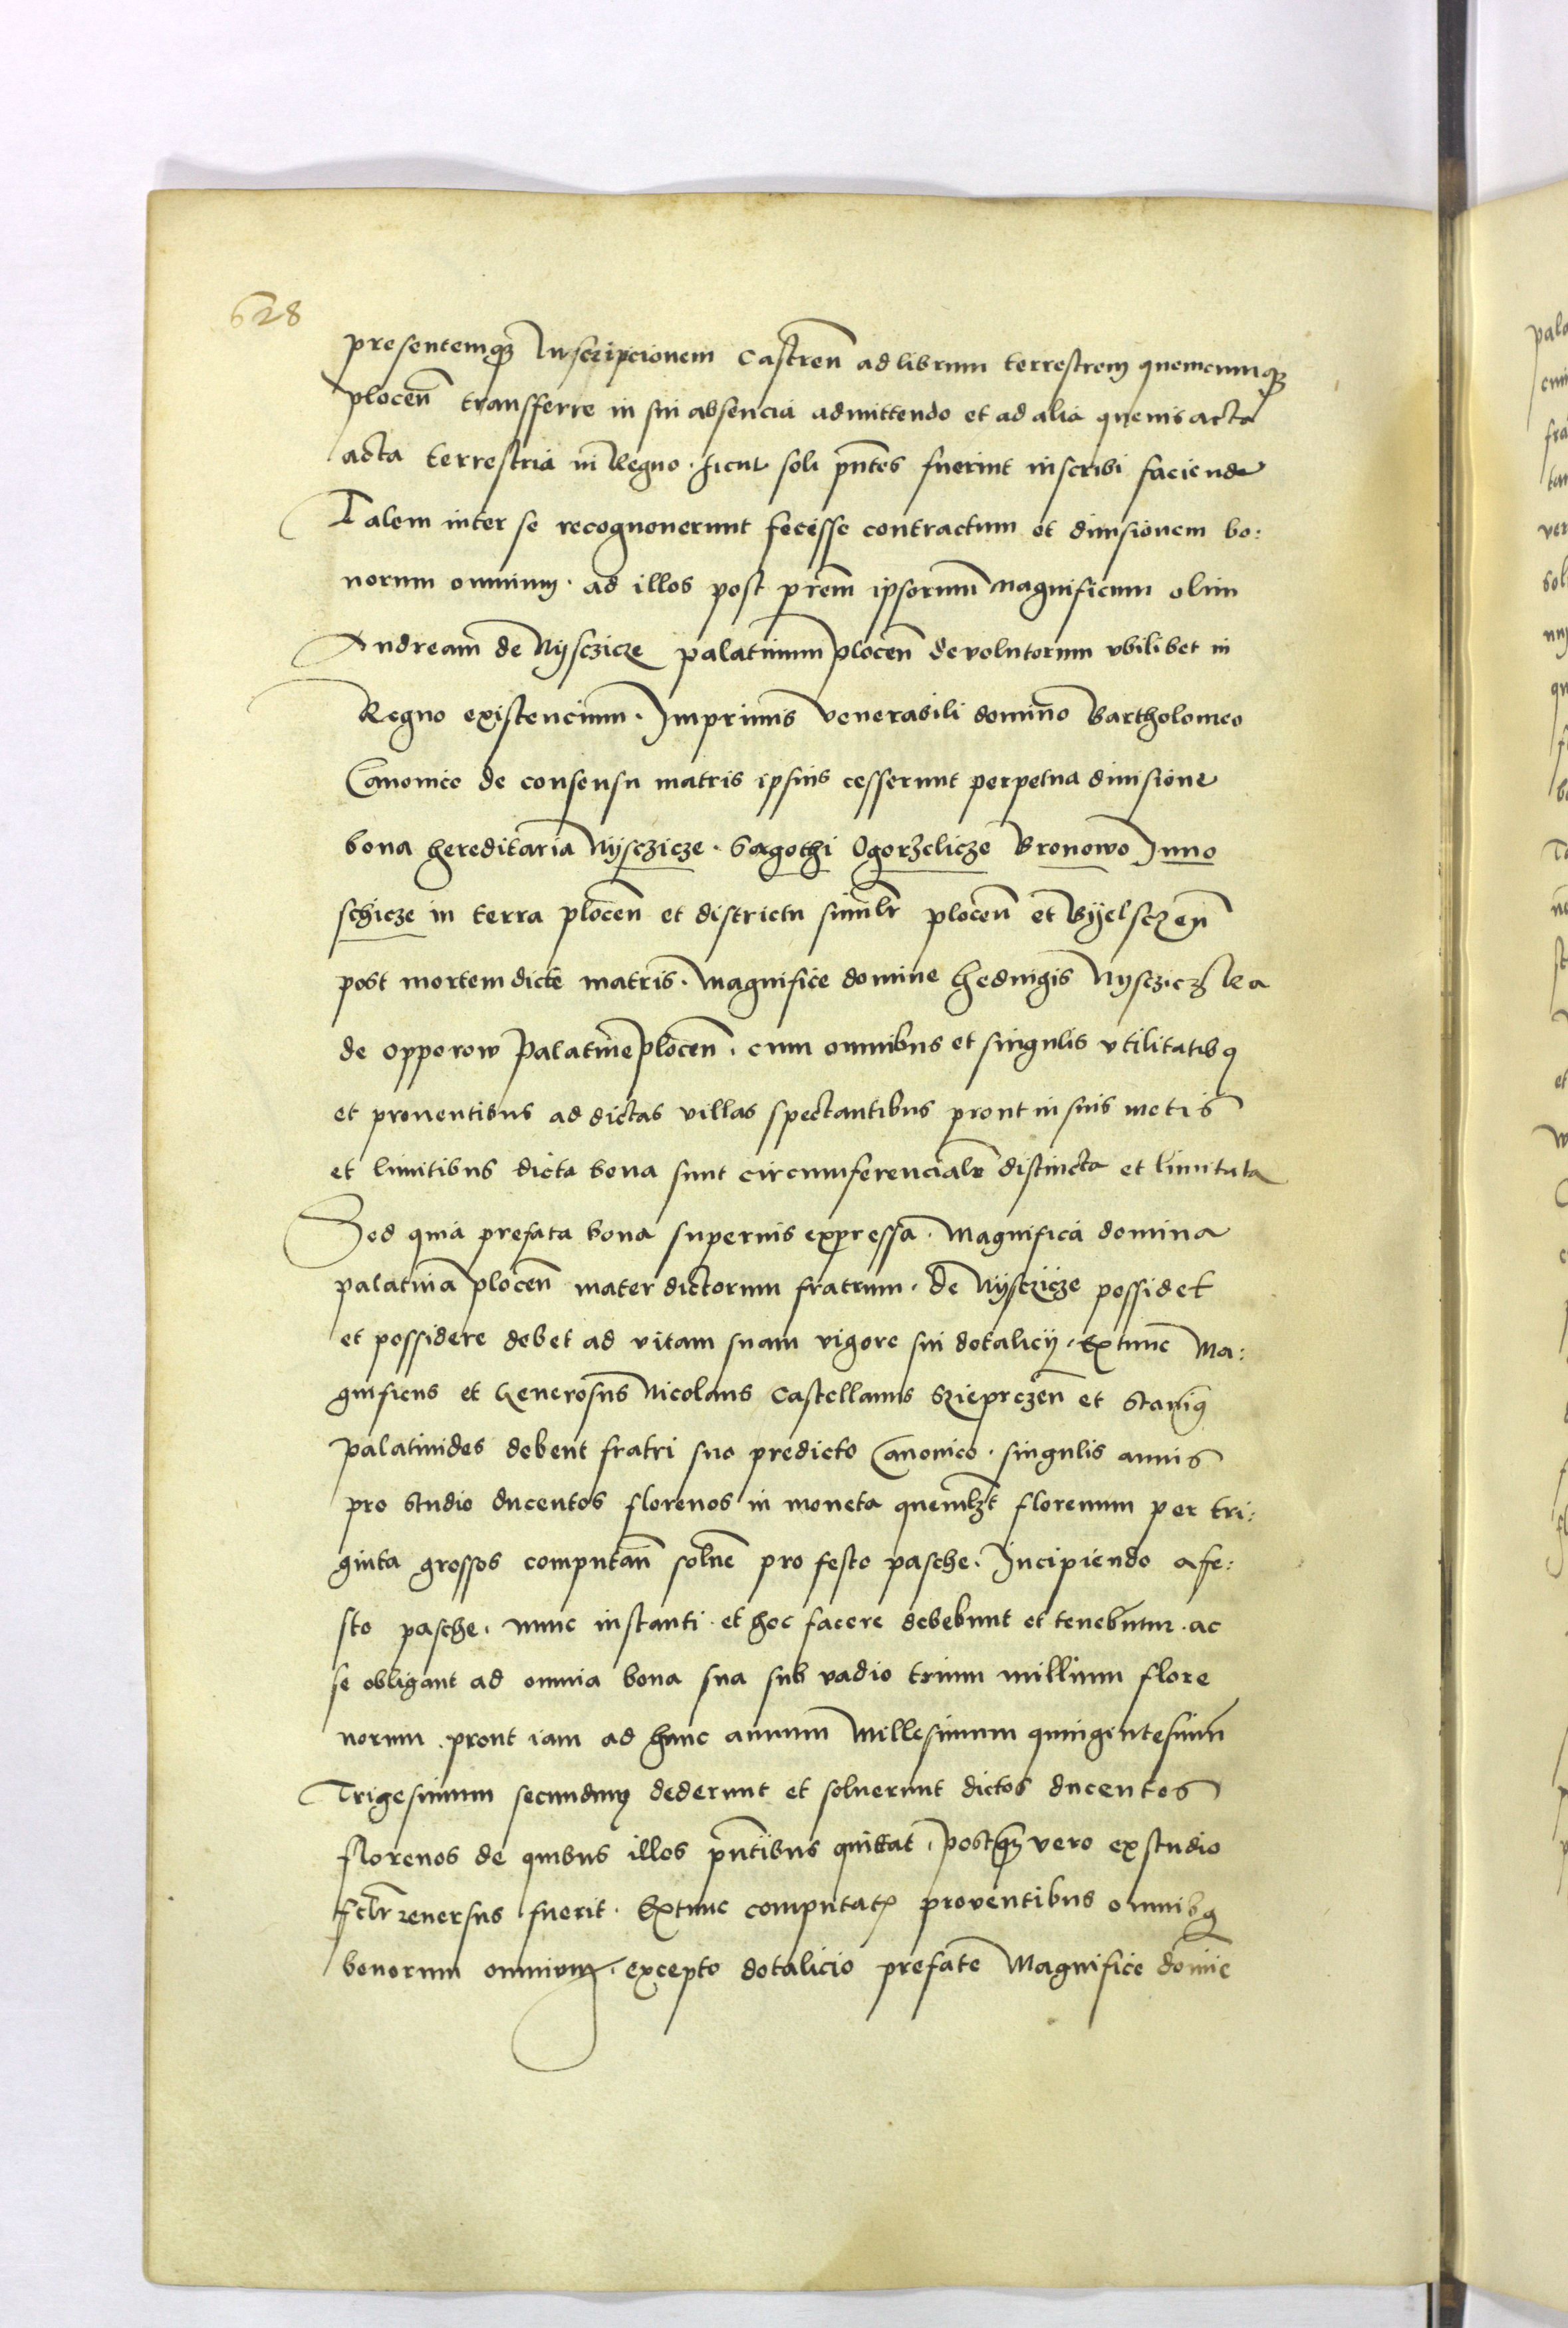 628
presentemq3 Inscripcionem Castren̄ ad librum terrestrem quemcumq3
plocen̄ transfferre in sui absencia admittendo et ad alia quevis acta
acta terrestria in Regno. sicut soli pn̄tes fuerint inscribi faciende
Talem inter se recognouerunt fecisse contractum et diuisionem bo:
norum omnium. ad illos post prēm ipsorum magnificum olim
Andream de Nysczicze palatinum plocen̄ devolutorum vbilibet in
Regno existencium. Inprimis venerabili domino Bartholomeo
Canonico de consensu matris ipsius cesserunt perpetua diuisione
bona hereditaria Nysczicze. Sagothi Ogorzelicze Bronowo Juno
schicze in terra plocen̄ et districtu simılr plocen̄ et Byelsczen̄
post mortem dicte matris. Magnifice domine Heduigis Nyscziczka
de Opporow Palatine plocen̄. cum omnibus et singulis vtilitatibꝯ
et prouentibus ad dictas villas spectantibus prout in suis metis
et limitibus dicta bona sunt circumferencialr distincta et limitata
Sed quia prefata bona superius expressa. Magnifica domina
palatina plocen̄ mater dictorum fratrum. de Nysczicze possidet
et possidere debet ad vitam suam vigore sui dotalicij. Extunc Ma:
gnificus et Generosus Nicolaus Castellanus Szieprczen̄ et Stanisꝯ
palatinides debent fratri suo predicto Canonico. singulis annis
pro studio ducentos florenos in moneta queml3t florenum per tri:
ginta grossos computan̄ soluē pro festo pasche. Incipiendo a fe:
sto pasche. nunc instanti. et hoc facere debebunt et tenebuntur. ac
se obligant ad omnia bona sua sub vadio trium millium flore
norum. prout iam ad hunc annum Millesimum quingentesimū
Trigesimum secundum dederunt et soluerunt dictos ducentos
florenos de quibus illos pn̄tibus quittat. postq3 vero ex studio
reuersus fuerit. Extunc computatꝭ proventibus omnibꝯ
bonorum omnium. excepto dotalicio prefate Magnifice domīe